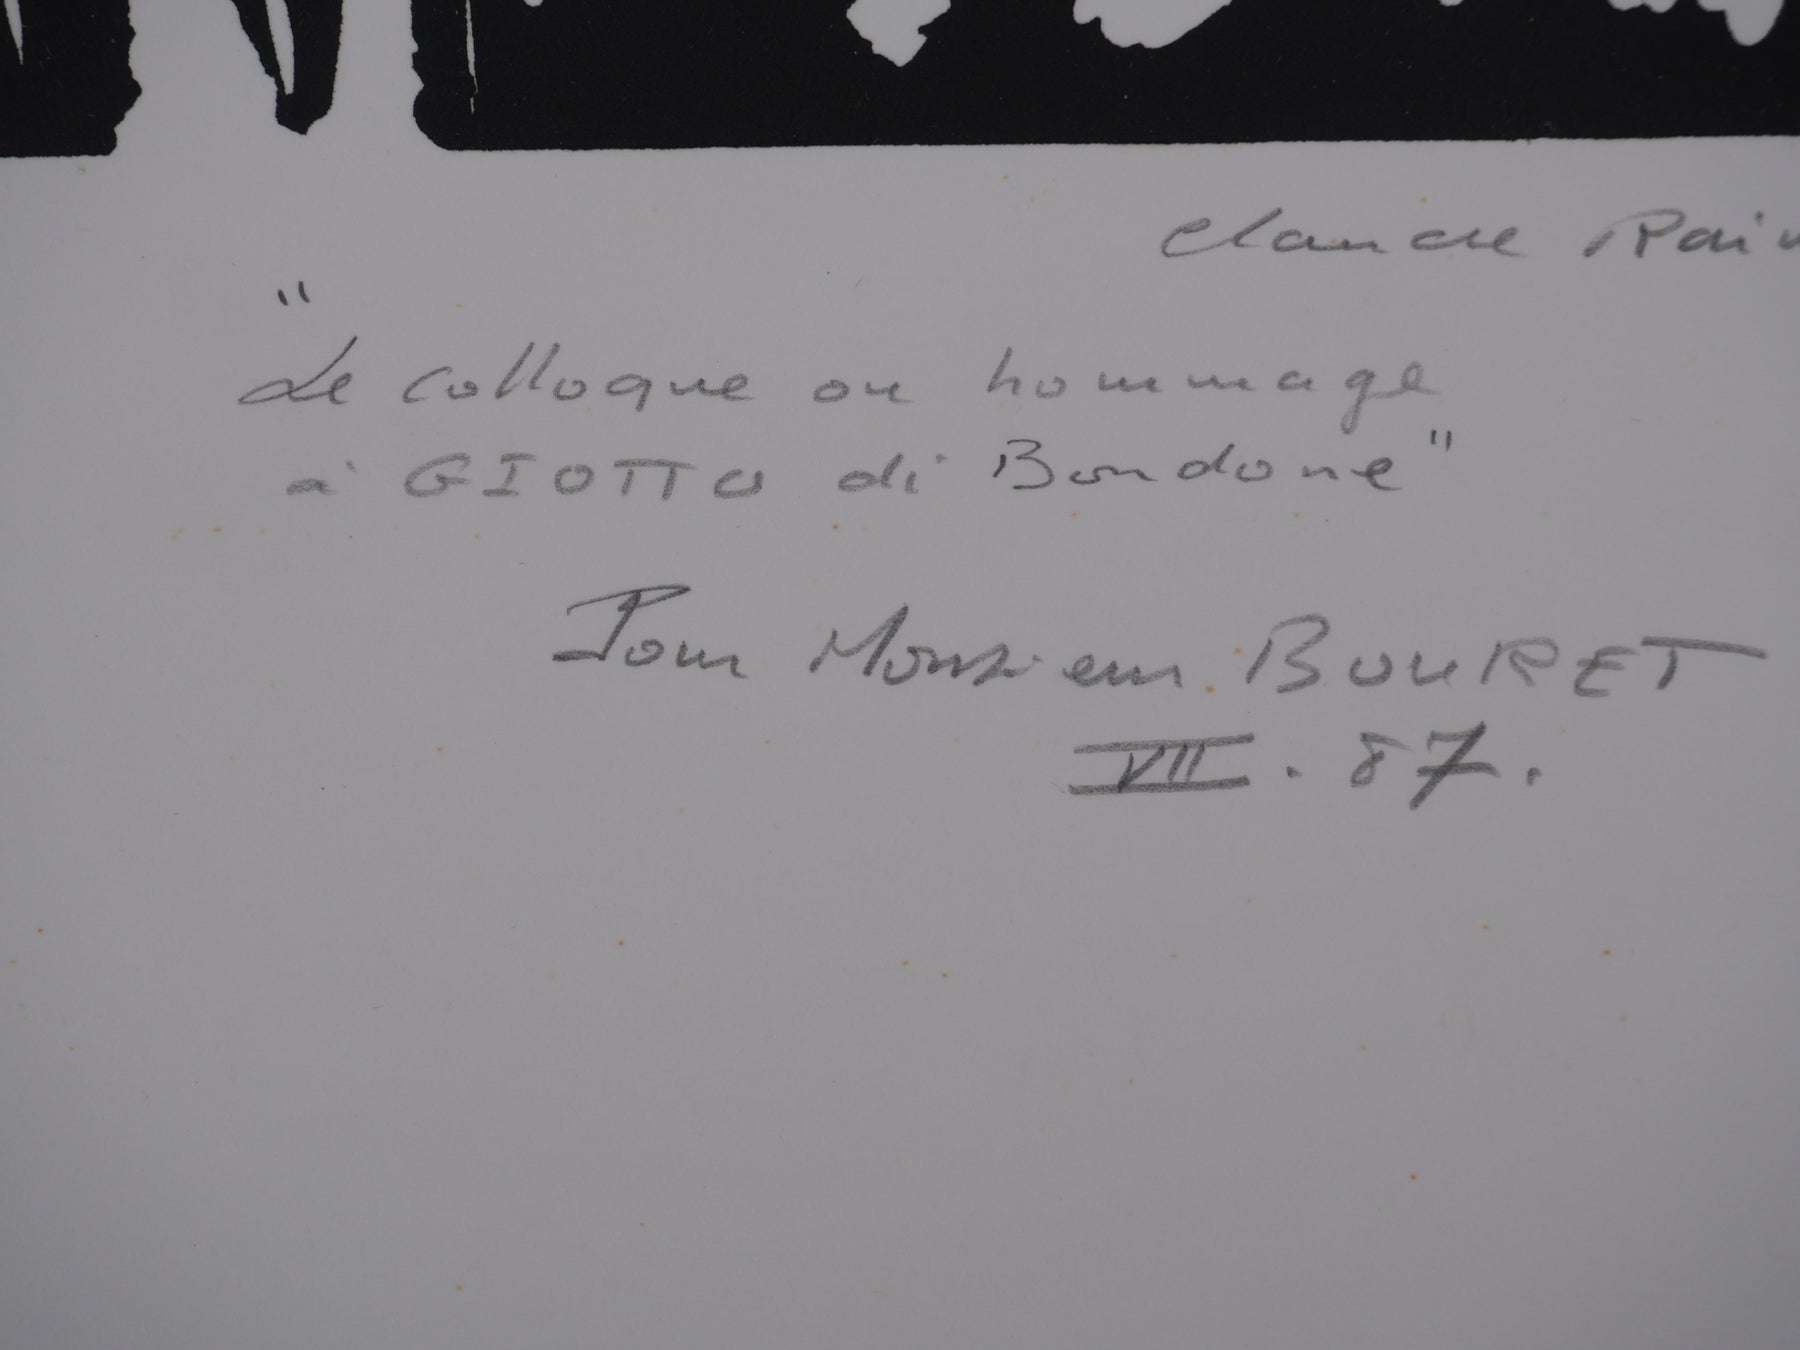 Claude
"
Le colloque ou hommage
à GIOTTO di Bondone"
Pour Monsieur BOURET
VII. 87.